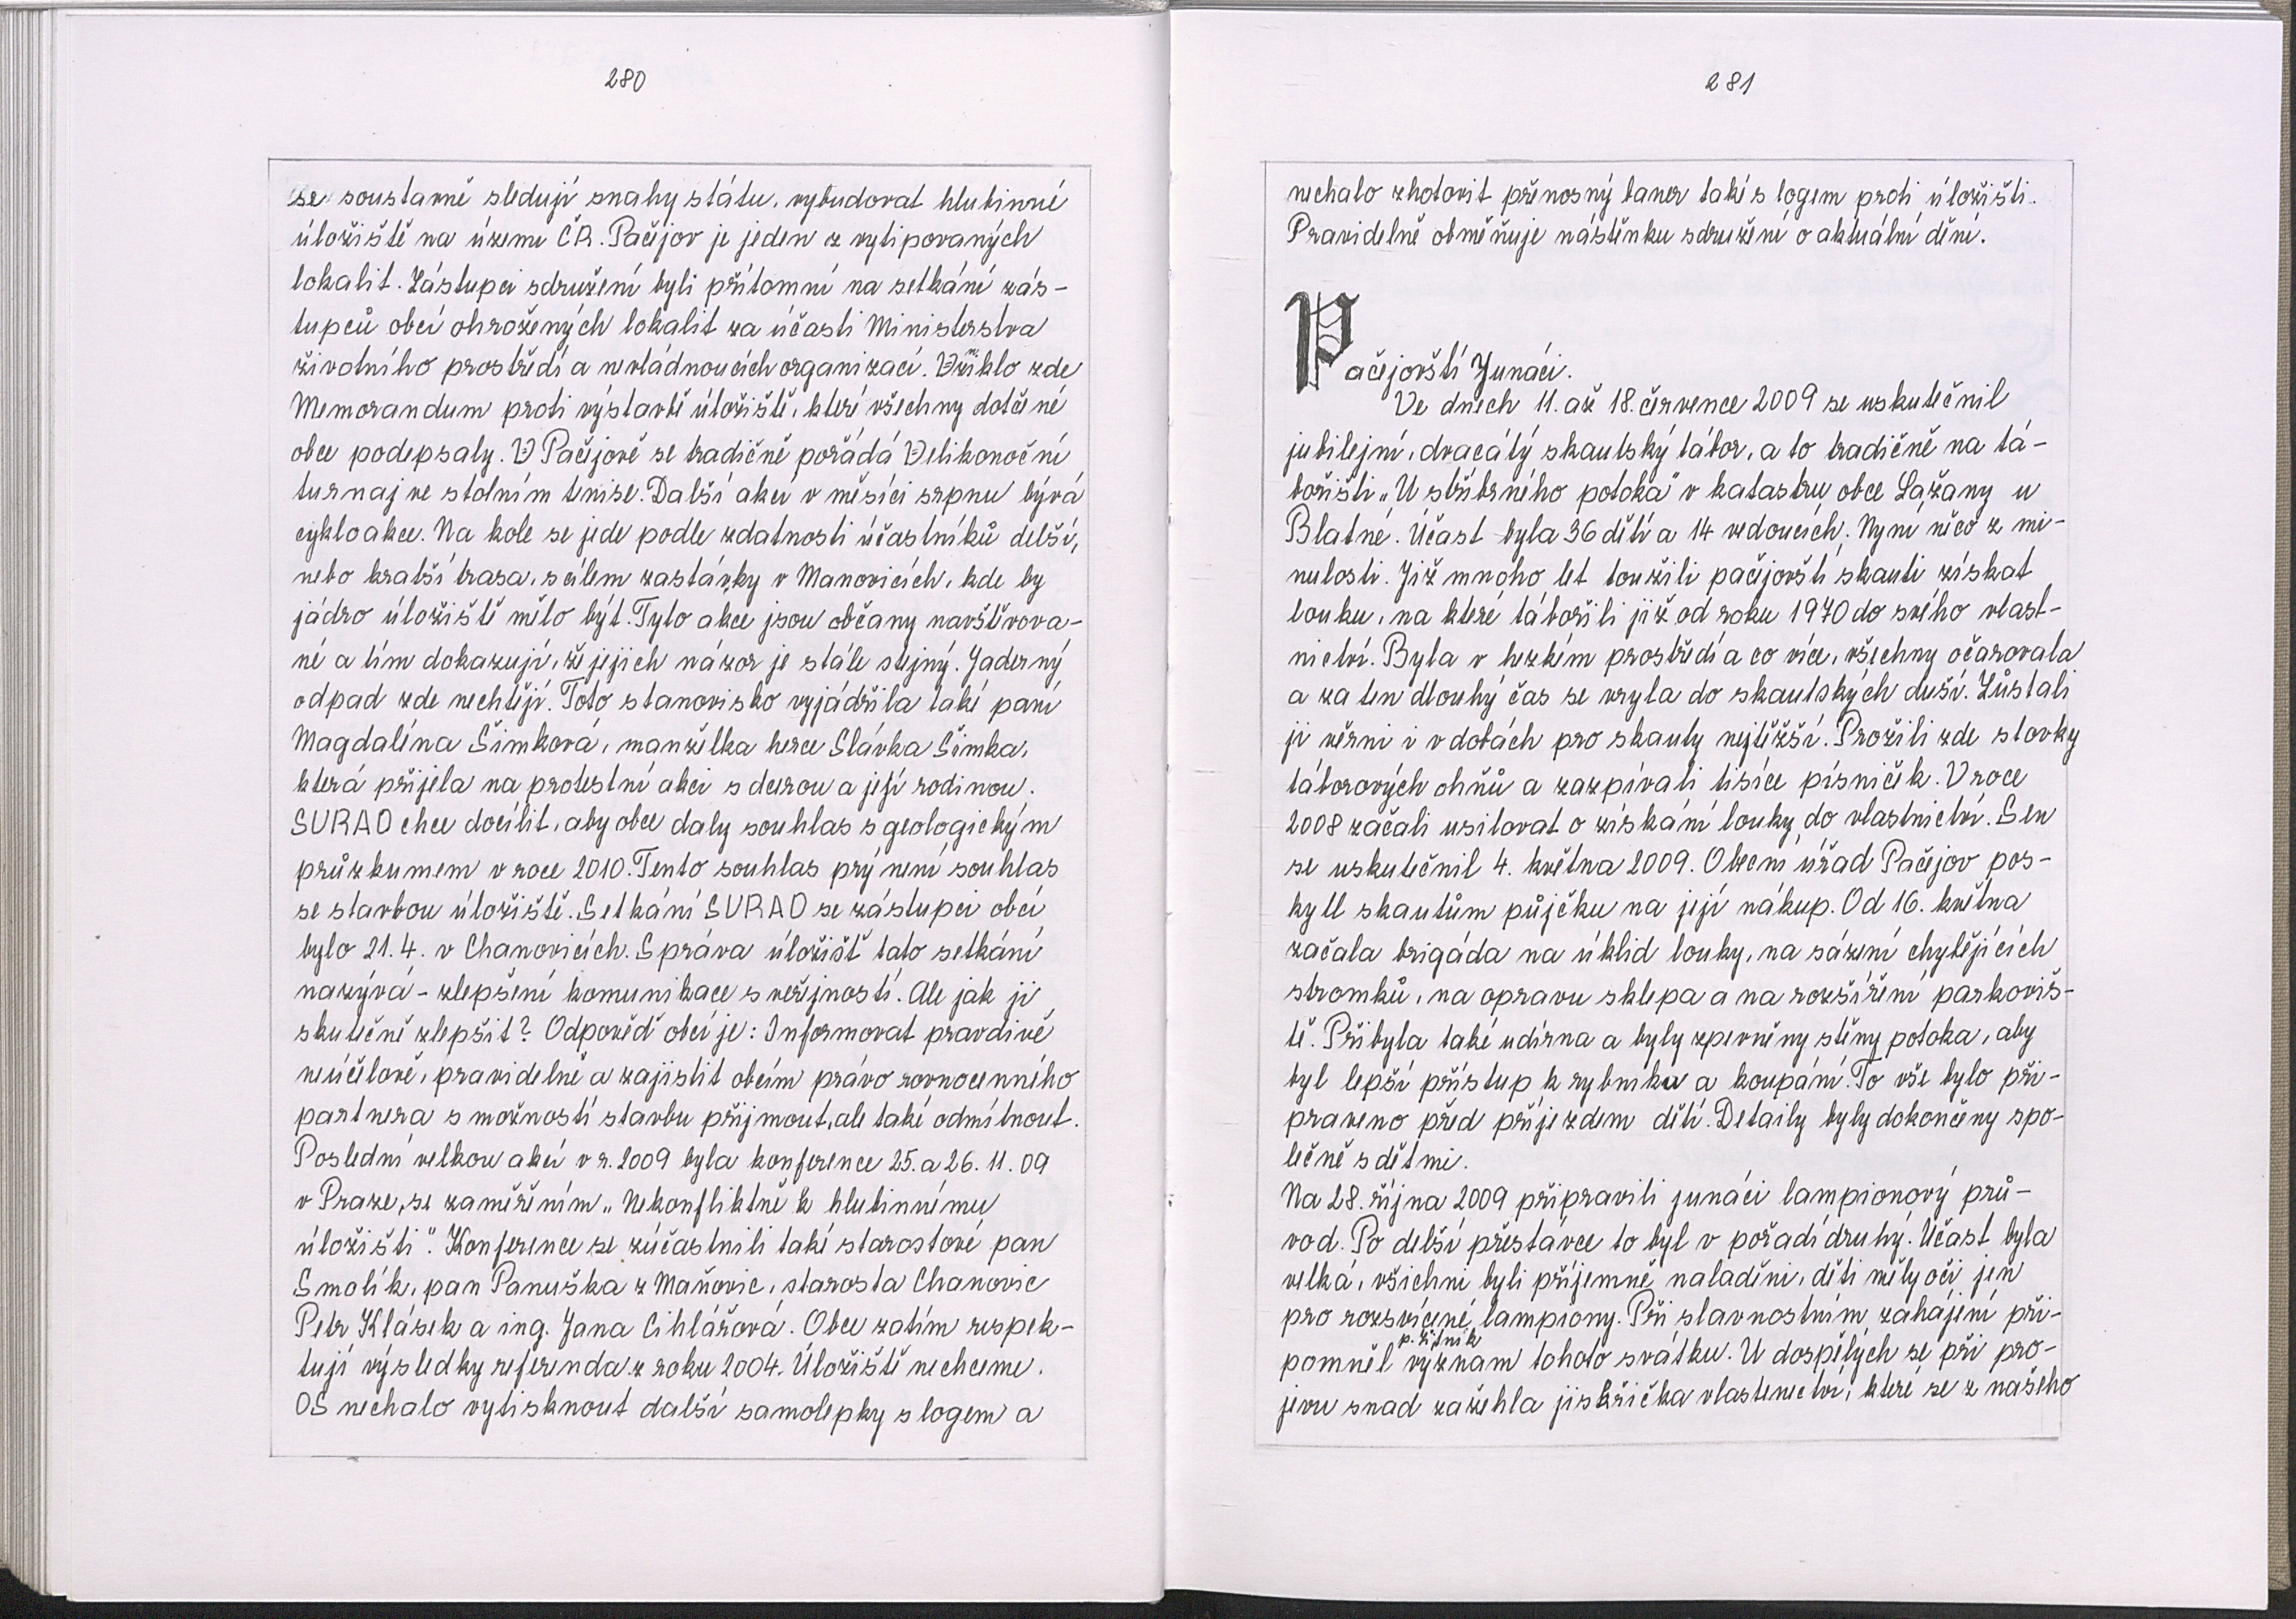 280
se soustavně sledují snahy státu, vybudovat hlubinné
úložiště na území ČR. Pačejov je jeden z vytipovaných
lokalit. Zástupci sdružení byli přítomni na setkání zás-
tupců obcí ohrožených lokalit za účasti Ministerstva
životního prostředí a nevládnoucích organizací. Vzniklo zde
Memorandum proti výstavbě úložiště, které všechny dotčené
obce podepsaly. V Pačejově se tradičně pořádá Velikonoční
turnaj ve stolním tenise. Další akcí v měsíci srpnu bývá
cykloakce. Na kole se jede podle zdatnosti účastníků delší,
nebo kratší trasa, s cílem zastávky v Maňovicích, kde by
jádro úložiště mělo být. Tyto akce jsou občany navštěvova-
né a tím dokazují, že jejich názor je stále stejný. Jaderný
odpad zde nechtějí. Toto stanovisko vyjádřila také paní
Magdaléna Šimková, manželka herce Slávka Šimka,
která přijela na protestní akci s dcerou a její rodinou.
SURAO chce docílit, aby obce daly souhlas s geologickým
průzkumem v roce 2010. Tento souhlas prý není souhlas
se stavbou úložiště. Setkání SURAO se zástupci obcí
bylo 21.4. v Chanovicích. Správa úložišť tato setkání
nazývá - zlepšení komunikace s veřejností. Ale jak ji
skutečně zlepšit? Odpověď obcí je: Informovat pravdivě
neúčelově, pravidelně a zajistit obcím právo rovnocenného
partnera s možností stavbu přijmout, ale také odmítnout.
Poslední velkou akcí v r. 2009 byla konference 25. a 26. 11. 09
v Praze, se zaměřením „Nekonfliktně k hlubinnému
úložišti". Konference se zúčastnili také starostové pan
Smolík, pan Panuška z Maňovic, starosta Chanovic
Petr Klásek a ing. Jana Cihlářová. Obce zatím respek-
tují výsledky referenda z roku 2004. Úložiště nechceme.
OS nechalo vytisknout další samolepky s logem a
281
nechalo zhotovit přenosný baner také s logem proti úložišti.
Pravidelně obměňuje nástěnku sdružení o aktuální dění.
Pačejovští Junáci.
Ve dnech 11. až 18. července 2009 se uskutečnil
jubilejní, dvacátý skautský tábor, a to tradičně na tá-
bořišti „U stříbrného potoka" v katastru obce Lažany u
Blatné. Účast byla 36 dětí a 14 vedoucích. Nyní něco z mi-
nulosti. Již mnoho let toužili pačejovští skauti získat
louku, na které tábořili již od roku 1970 do svého vlast-
nictví. Byla v hezkém prostředí a co více, všechny očarovala
a za ten dlouhý čas se vryla do skautských duší. Zůstali
jí věrni i v dobách pro skauty nejtěžší. Prožili zde stovky
táborových ohňů a zazpívali tisíce písniček. V roce
2008 začali usilovat o získání louky do vlastnictví. Sen
se uskutečnil 4. května 2009. Obecní úřad Pačejov pos-
kytl skautům půjčku na její nákup. Od 16. května
začala brigáda na úklid louky, na sázení chybějících
stromků, na opravu sklepa a na rozšíření parkoviš-
tě. Přibyla také udírna a byly zpevněny stěny potoka, aby
byl lepší přístup k rybníku a koupání. To vše bylo při-
praveno před příjezdem dětí. Detaily byly dokončeny spo-
lečně s dětmi.
Na 28. října 2009 připravili junáci lampionový prů-
vod. Po delší přestávce to byl v pořadí druhý. Účast byla
velká, všichni byli příjemně naladěni, děti měly oči jen
pro rozsvícené lampiony. Při slavnostním zahájení při-
pomněl p. Žitník význam tohoto svátku. U dospělých se při pro-
jevu snad zažehla jiskřička vlastenectví, které se z našeho